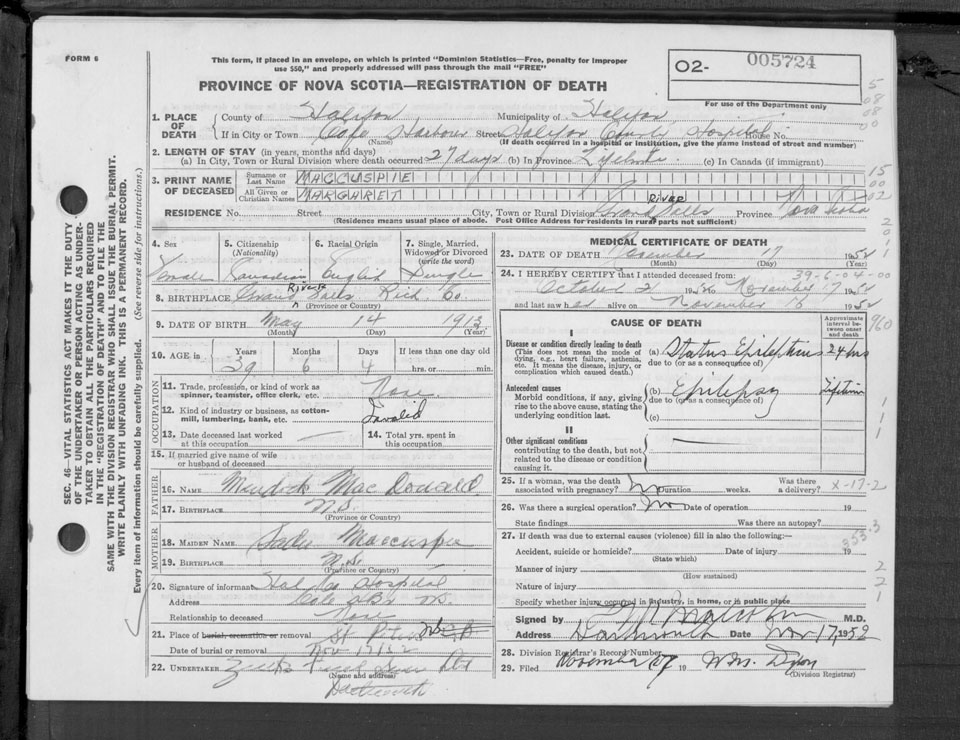 FORM 6
This form, if placed in an envelope, on which is printed "Dominion Statistics—Free, penalty for improper
use $50," and properly addressed will pass through the mail "FREE"
PROVINCE OF NOVA SCOTIA—REGISTRATION OF DEATH
O2- 005724
For use of the Department only
5
08
08
00
1. PLACE OF DEATH
County of Halifax Municipality of Halifax
If in City or Town Cole Harbour Street Halifax County Hospital House No.
(Name) (If death occurred in a hospital or institution, give the name instead of street and number)
2. LENGTH OF STAY (in years, months and days)
(a) In City, Town or Rural Division where death occurred 27 days (b) In Province Lifetime (c) In Canada (if immigrant)
3. PRINT NAME OF DECEASED
Surname or Last Name MACCUSPIE
All Given or Christian Names MARGARET
15
00
02
RESIDENCE No. Street City, Town or Rural Division Grand River Falls Province Nova Scotia
(Residence means usual place of abode. Post Office Address for residents in rural parts not sufficient)
2011
4. Sex Female
5. Citizenship (Nationality) Canadian
6. Racial Origin English
7. Single, Married, Widowed or Divorced (write the word) Single
8. BIRTHPLACE Grand River Falls Rich. Co.
9. DATE OF BIRTH May 14 1913
(Month) (Day) (Year)
10. AGE in Years Months Days If less than one day old
39 6 4 hrs. or min.
OCCUPATION
11. Trade, profession, or kind of work as
spinner, teamster, office clerk, etc. None
12. Kind of industry or business, as cotton-
mill, lumbering, bank, etc. Invalid
13. Date deceased last worked
at this occupation
14. Total yrs. spent in
this occupation
15. If married give name of wife
or husband of deceased
FATHER
16. NAME Murdock MacDonald
17. BIRTHPLACE N.S.
(Province or Country)
MOTHER
18. MAIDEN NAME Sadie Maccuspie
19. BIRTHPLACE N.S.
(Province or Country)
20. Signature of informant Hal Co Hospital
Address Cole Hbr N.S.
Relationship to deceased None
21. Place of burial, cremation or removal St Peters
Date of burial or removal Nov 17/52
22. UNDERTAKER
(Name and address)
Dartmouth
MEDICAL CERTIFICATE OF DEATH
23. DATE OF DEATH November 17 1952
(Month) (Day)
24. I HEREBY CERTIFY that I attended deceased from: 39-6-04-00
October 21 1952 to November 17 1952
and last saw her alive on November 16 1952
960
CAUSE OF DEATH
Approximate interval between onset and death
I
Disease or condition directly leading to death
(This does not mean the mode of
dying, e.g., heart failure, asthenia,
etc. It means the disease, injury, or
complication which caused death.)
(a) Status Epilepticus 24 hrs
due to (or as a consequence of)
Antecedent causes
Morbid conditions, if any, giving
rise to the above cause, stating the
underlying condition last.
(b) Epilepsy Lifetime
due to (or as a consequence of)
(c)
II
Other significant conditions
contributing to the death, but not
related to the disease or condition
causing it.
1
1
25. If a woman, was the death
associated with pregnancy? No Duration weeks. Was there
a delivery? X-17-2
26. Was there a surgical operation? No Date of operation 19
State findings Was there an autopsy?
353.3
27. If death was due to external causes (violence) fill in also the following:—
Accident, suicide or homicide? Date of injury 19
(State which)
Manner of injury
(How sustained)
Nature of injury
2
2
1
Specify whether injury occurred in industry, in home, or in public place
Signed by M.D.
Address Dartmouth Date Nov 17, 1952
28. Division Registrar's Record Number
29. Filed November 27 19
(Division Registrar)
SEC. 46—VITAL STATISTICS ACT MAKES IT THE DUTY
OF THE UNDERTAKER OR PERSON ACTING AS UNDER-
TAKER TO OBTAIN ALL THE PARTICULARS REQUIRED
IN THE "REGISTRATION OF DEATH" AND TO FILE THE
SAME WITH THE DIVISION REGISTRAR WHO SHALL ISSUE THE BURIAL PERMIT.
WRITE PLAINLY WITH UNFADING INK. THIS IS A PERMANENT RECORD.
Every item of information should be carefully supplied. (See reverse side for instructions.)